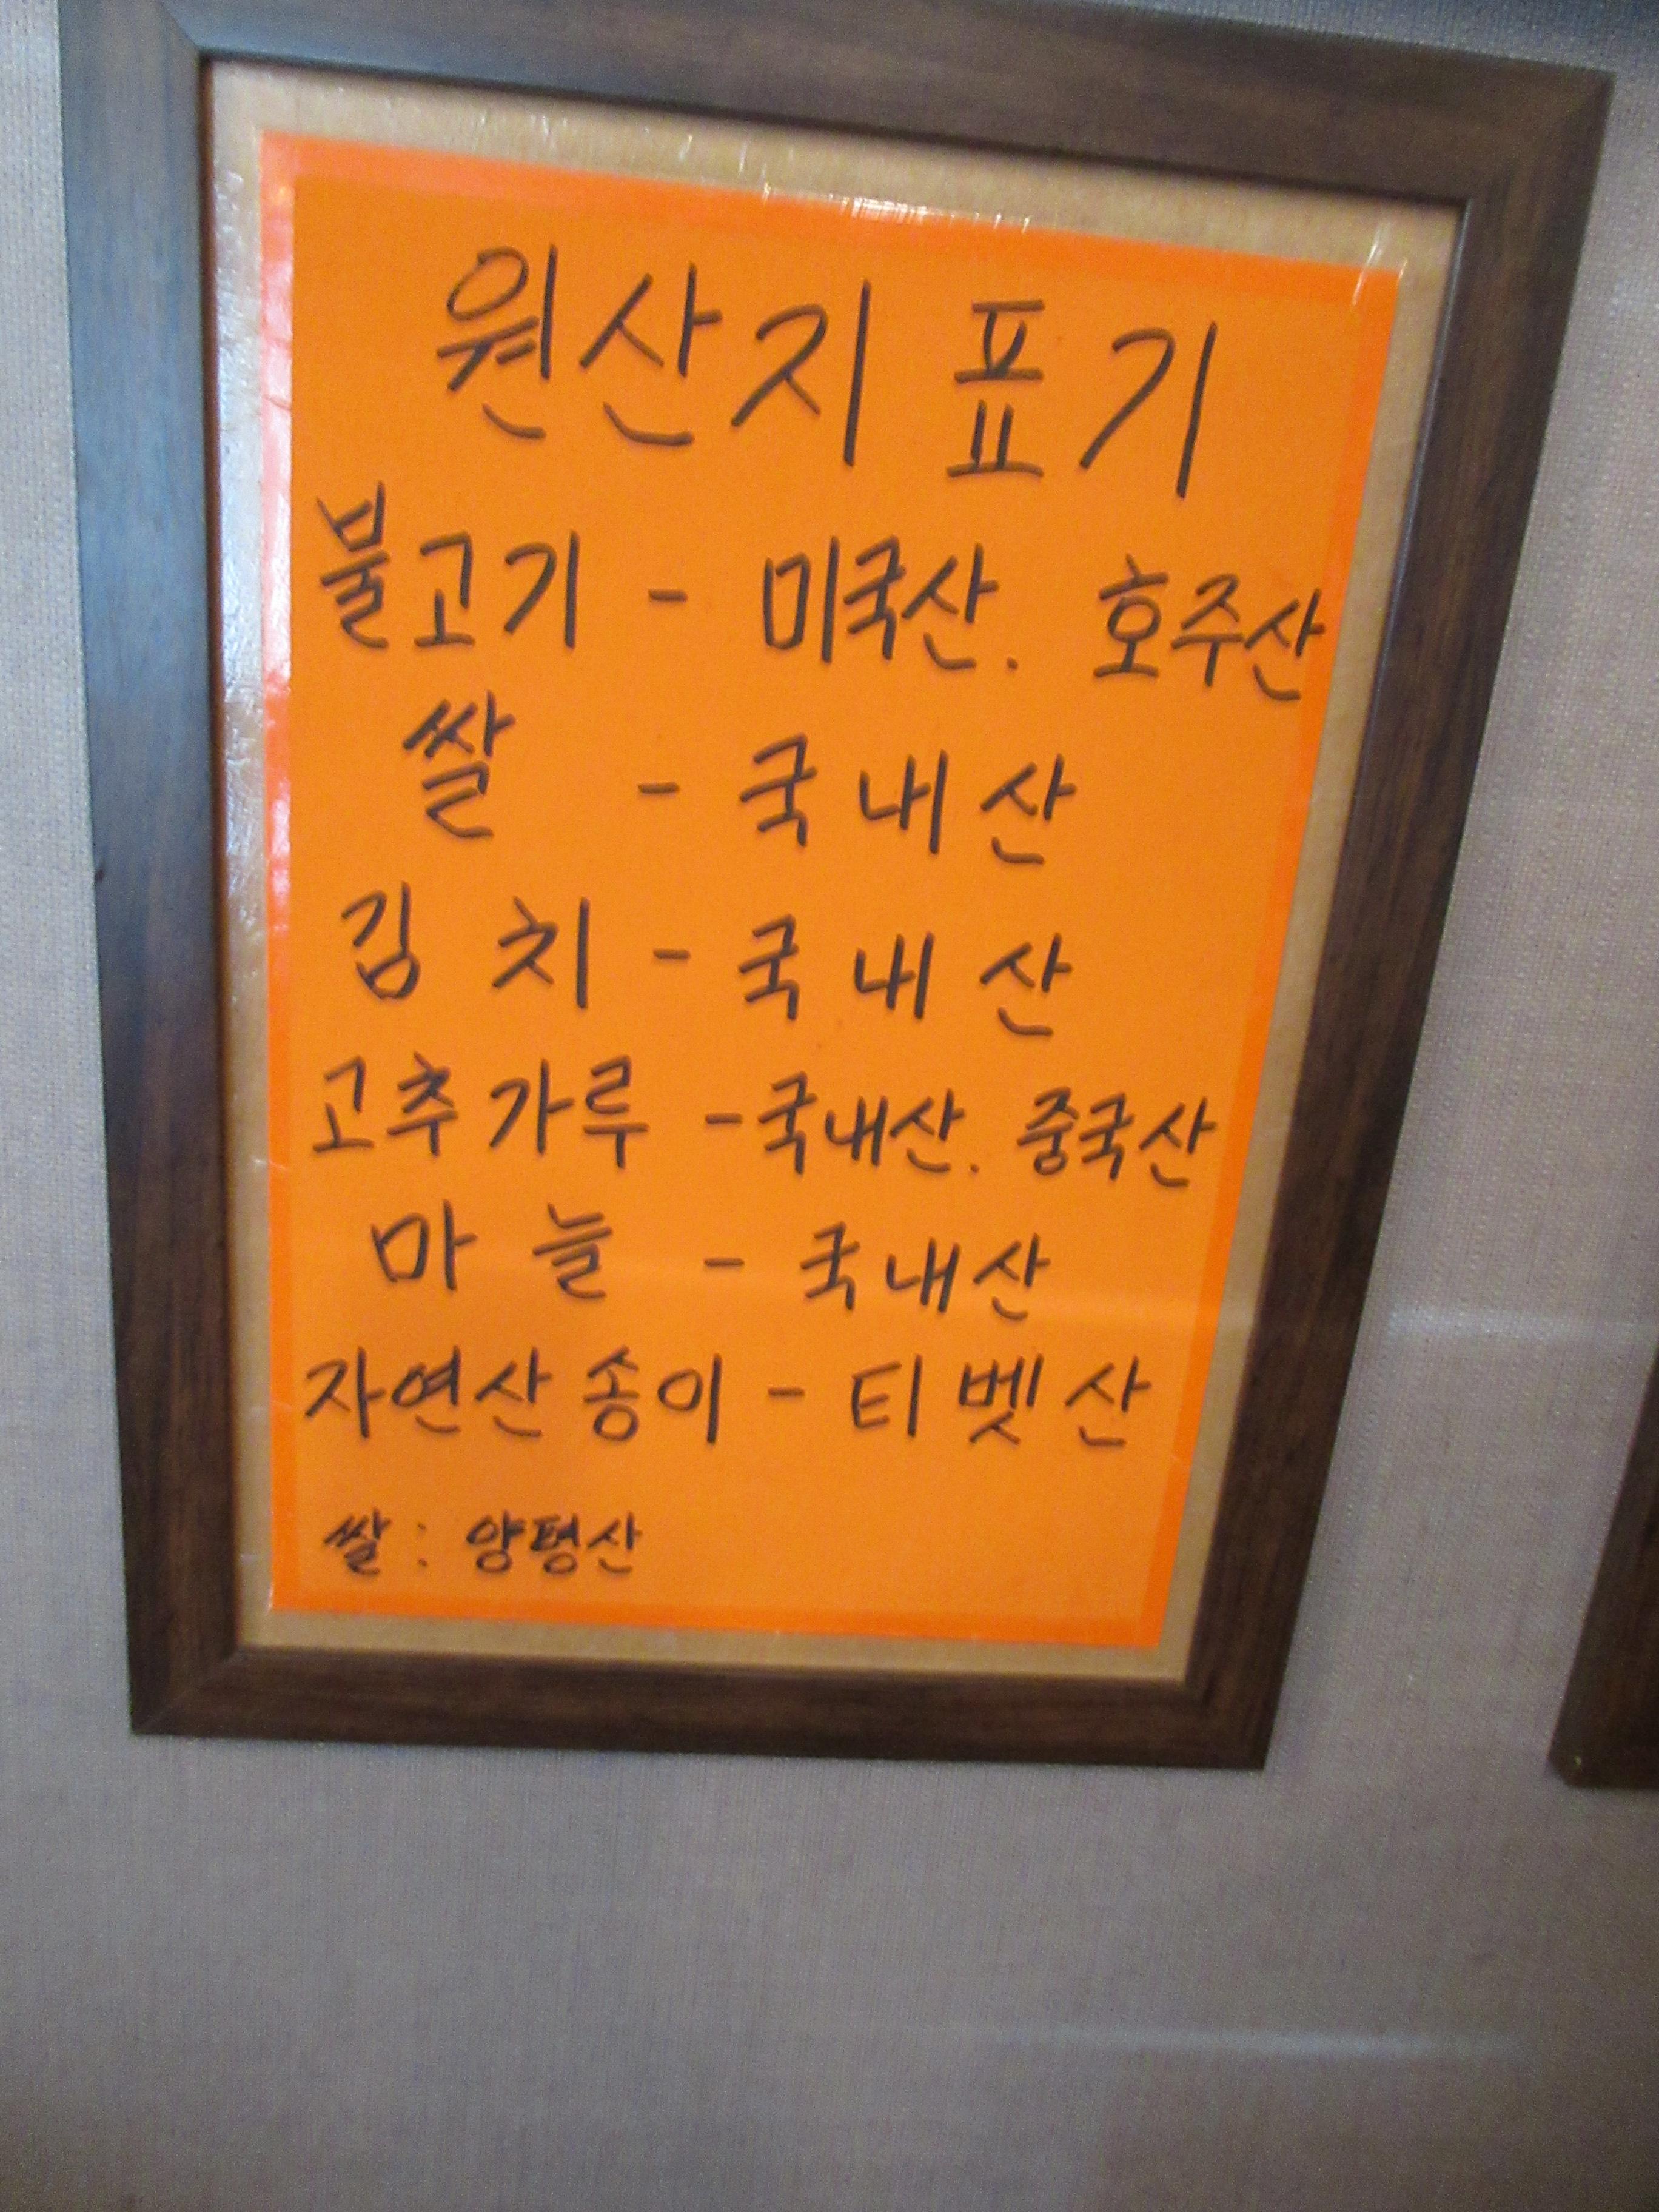 원산지 표기
불고기 - 미국산. 호주산
쌀 - 국내산
김치 - 국내산
고추가루 - 국내산. 중국산
마늘 - 국내산
자연산송이 - 티벳산
쌀 : 양평산